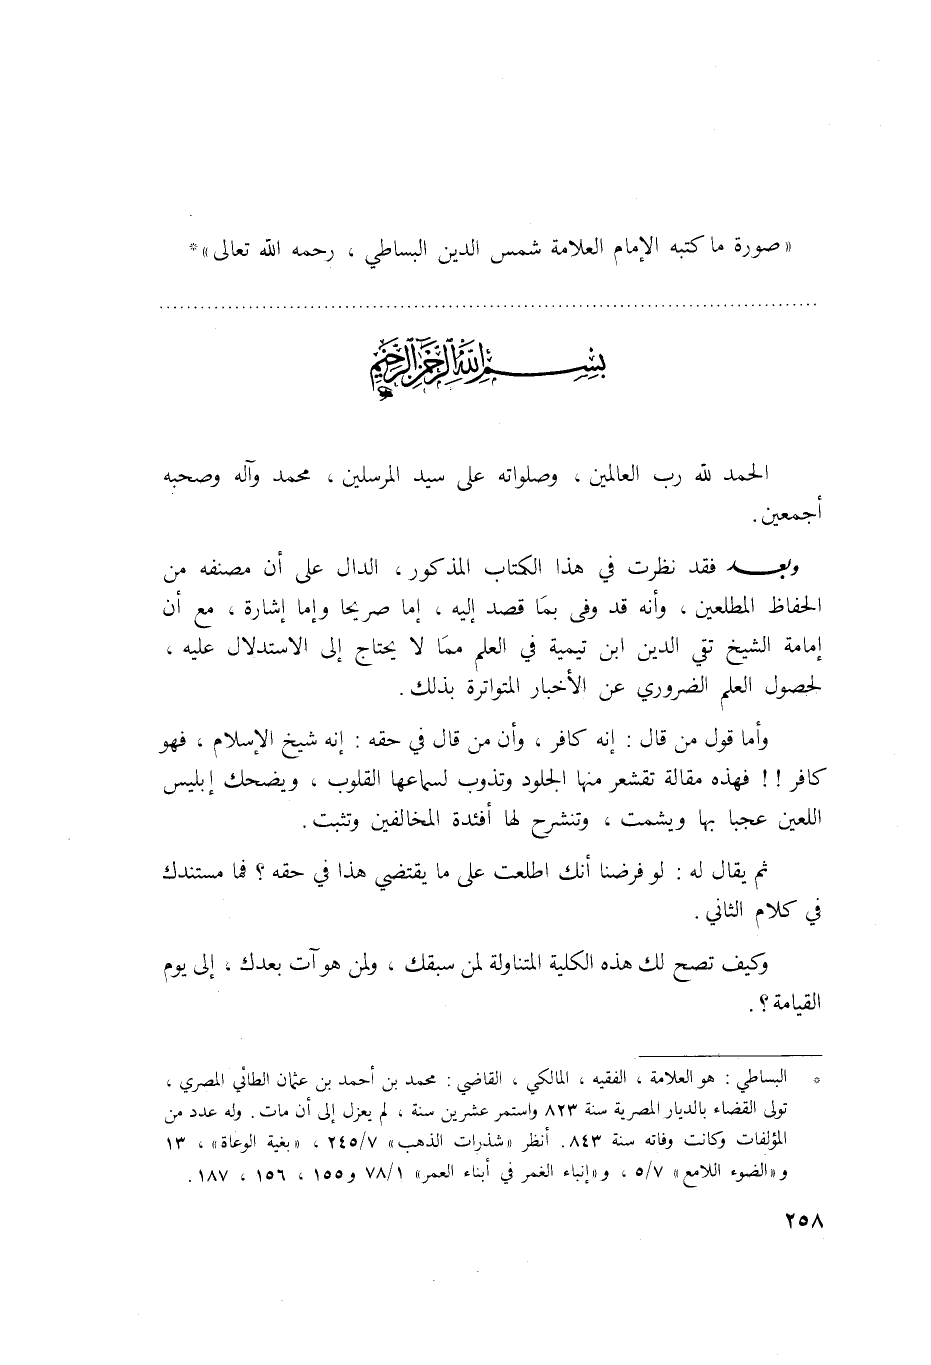 « صورة ما كتبه الإمام العلامة شمس الدين البساطي ، رحمه الله تعالى »*
بسم الله الرحمن الرحيم
الحمد لله رب العالمين ، وصلواته على سيد المرسلين ، محمد وآله وصحبه
أجمعين .
وبعـــد فقد نظرت في هذا الكتاب المذكور ، الدال على أن مصنفه من
الحفاظ المطلعين ، وأنه قد وفى بما قصد إليه ، إما صريحا وإما إشارة ، مع أن
إمامة الشيخ تقي الدين ابن تيمية في العلم مما لا يحتاج إلى الاستدلال عليه ،
لحصول العلم الضروري عن الأخبار المتواترة بذلك .
وأما قول من قال : إنه كافر ، وأن من قال في حقه : إنه شيخ الإسلام ، فهو
كافر !! فهذه مقالة تقشعر منها الجلود وتذوب لسماعها القلوب ، ويضحك إبليس
اللعين عجبا بها ويشمت ، وتنشرح لها أفئدة المخالفين وتثبت .
ثم يقال له : لو فرضنا أنك اطلعت على ما يقتضي هذا في حقه ؟ فما مستندك
في كلام الثاني .
وكيف تصح لك هذه الكلية المتناولة لمن سبقك ، ولمن هو آت بعدك ، إلى يوم
القيامة ؟ .
* البساطي : هو العلامة ، الفقيه ، المالكي ، القاضي : محمد بن أحمد بن عثمان الطائي المصري ،
تولى القضاء بالديار المصرية سنة ٨٢٣ واستمر عشرين سنة ، لم يعزل إلى أن مات . وله عدد من
المؤلفات وكانت وفاته سنة ٨٤٣ . أنظر « شذرات الذهب » ٢٤٥/٧ ، « بغية الوعاة » ، ١٣
و « الضوء اللامع » ٥/٧ ، و « إنباء الغمر في أبناء العمر » ٧٨/١ و ١٥٥ ، ١٥٦ ، ١٨٧ .
٢٥٨